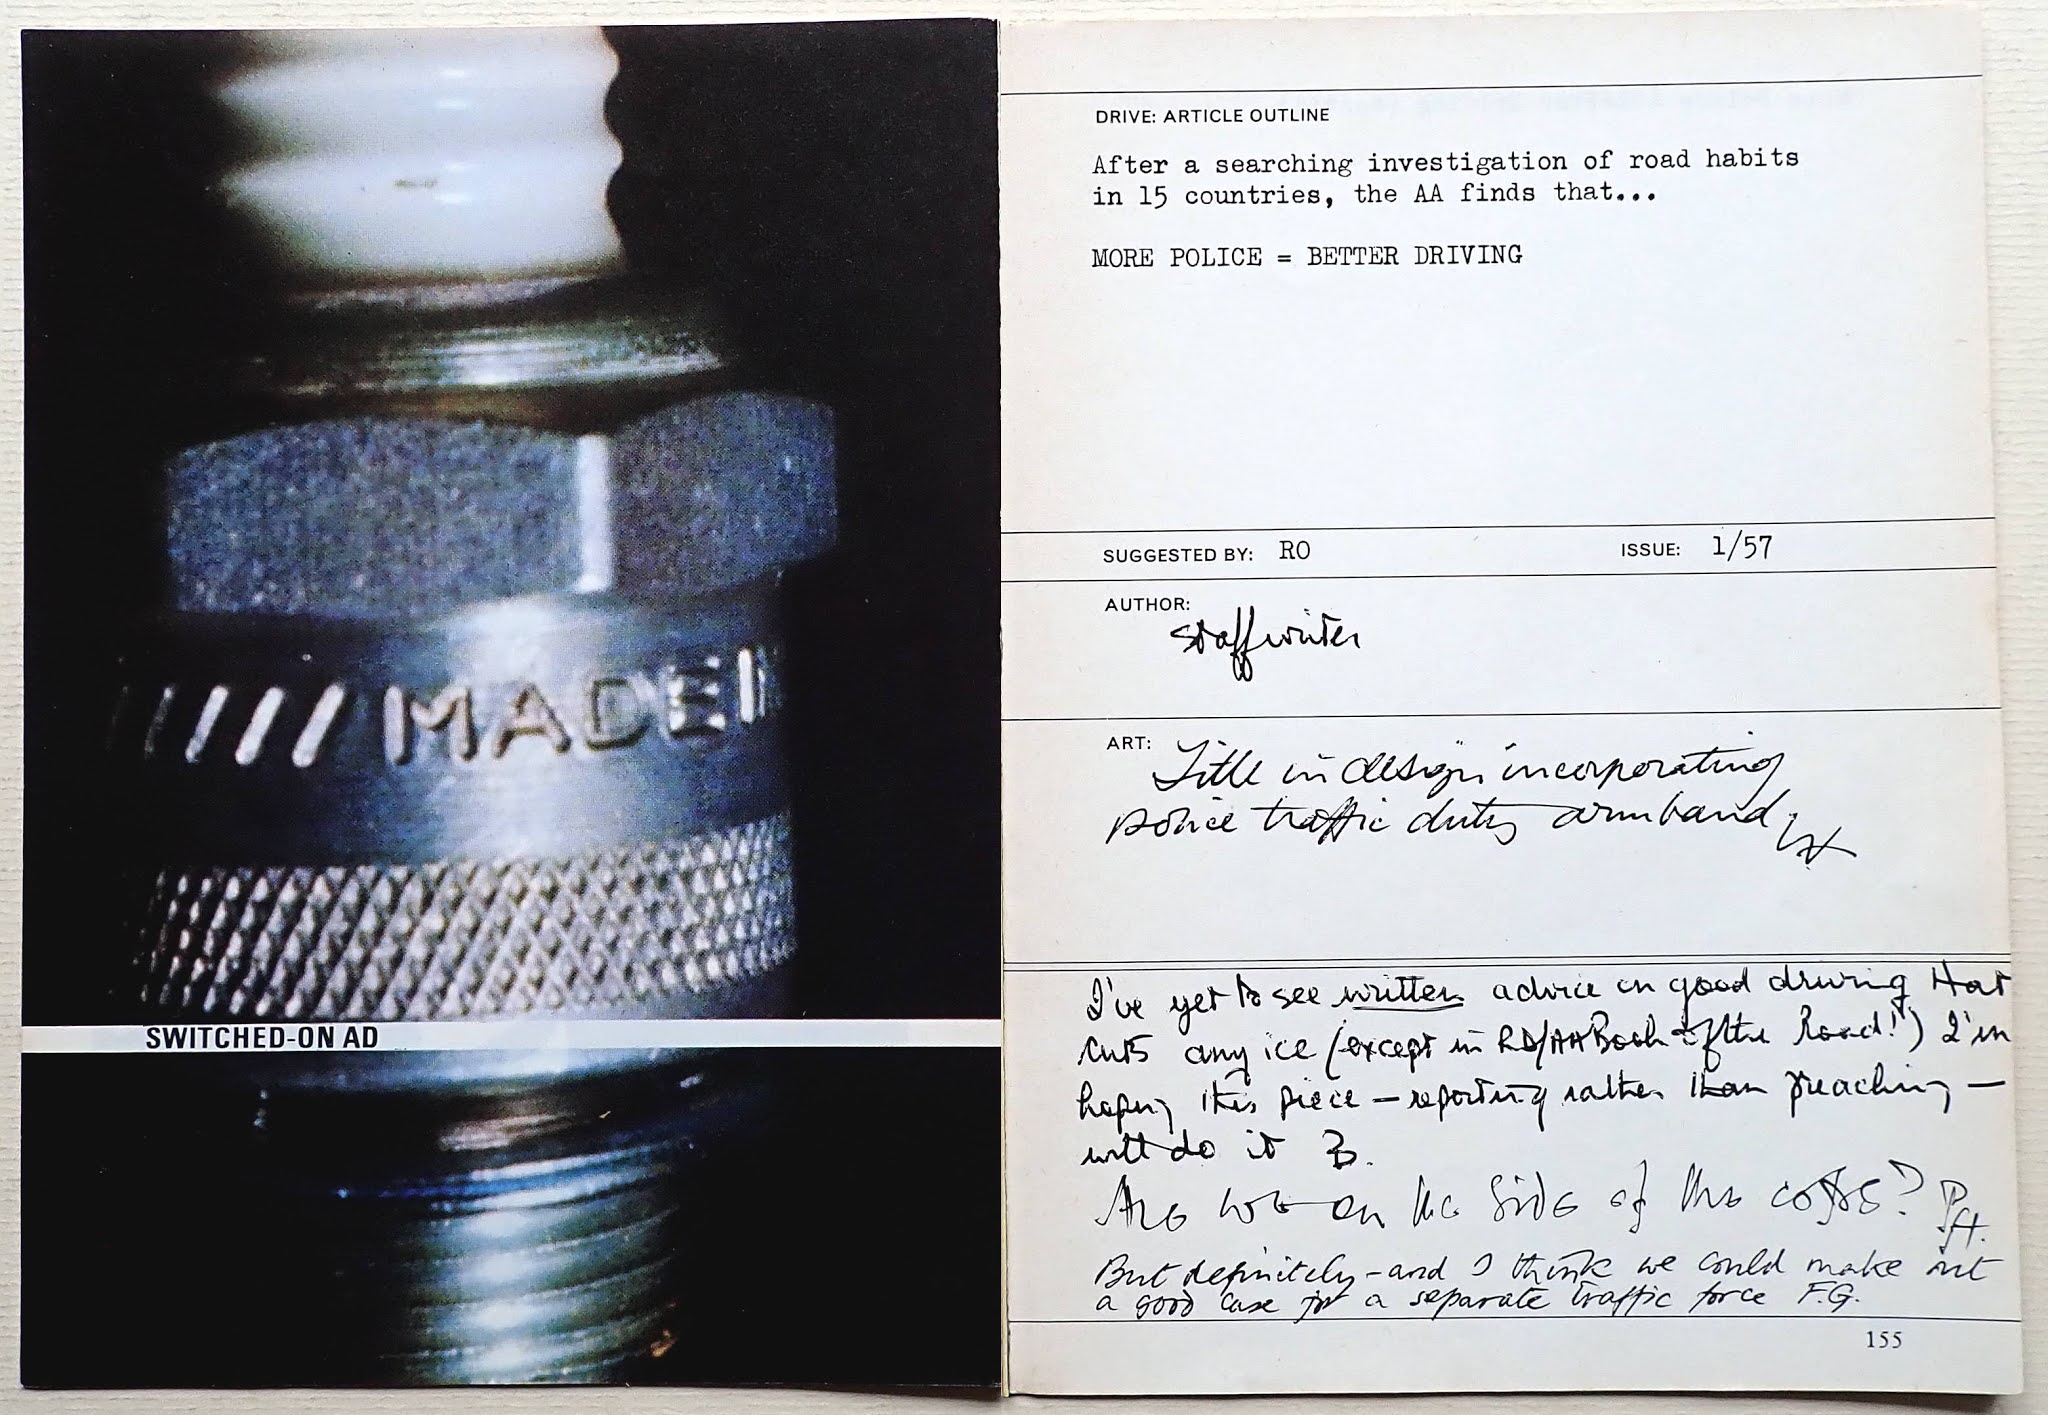 ///// MADE I
SWITCHED-ON AD
DRIVE: ARTICLE OUTLINE
After a searching investigation of road habits
in 15 countries, the AA finds that...
MORE POLICE = BETTER DRIVING
SUGGESTED BY: RO
ISSUE: 1/57
AUTHOR:
staffwriter
ART:
Title in design incorporating
police traffic duty armband.
I've yet to see written advice on good driving that
cuts any ice (except in RD/AA Book of the Road!) I'm
hoping this piece – reporting rather than preaching –
will do it B.
Are we on the side of the coppers? P.H.
But definitely – and I think we could make out
a good case for a separate traffic force F.G.
155